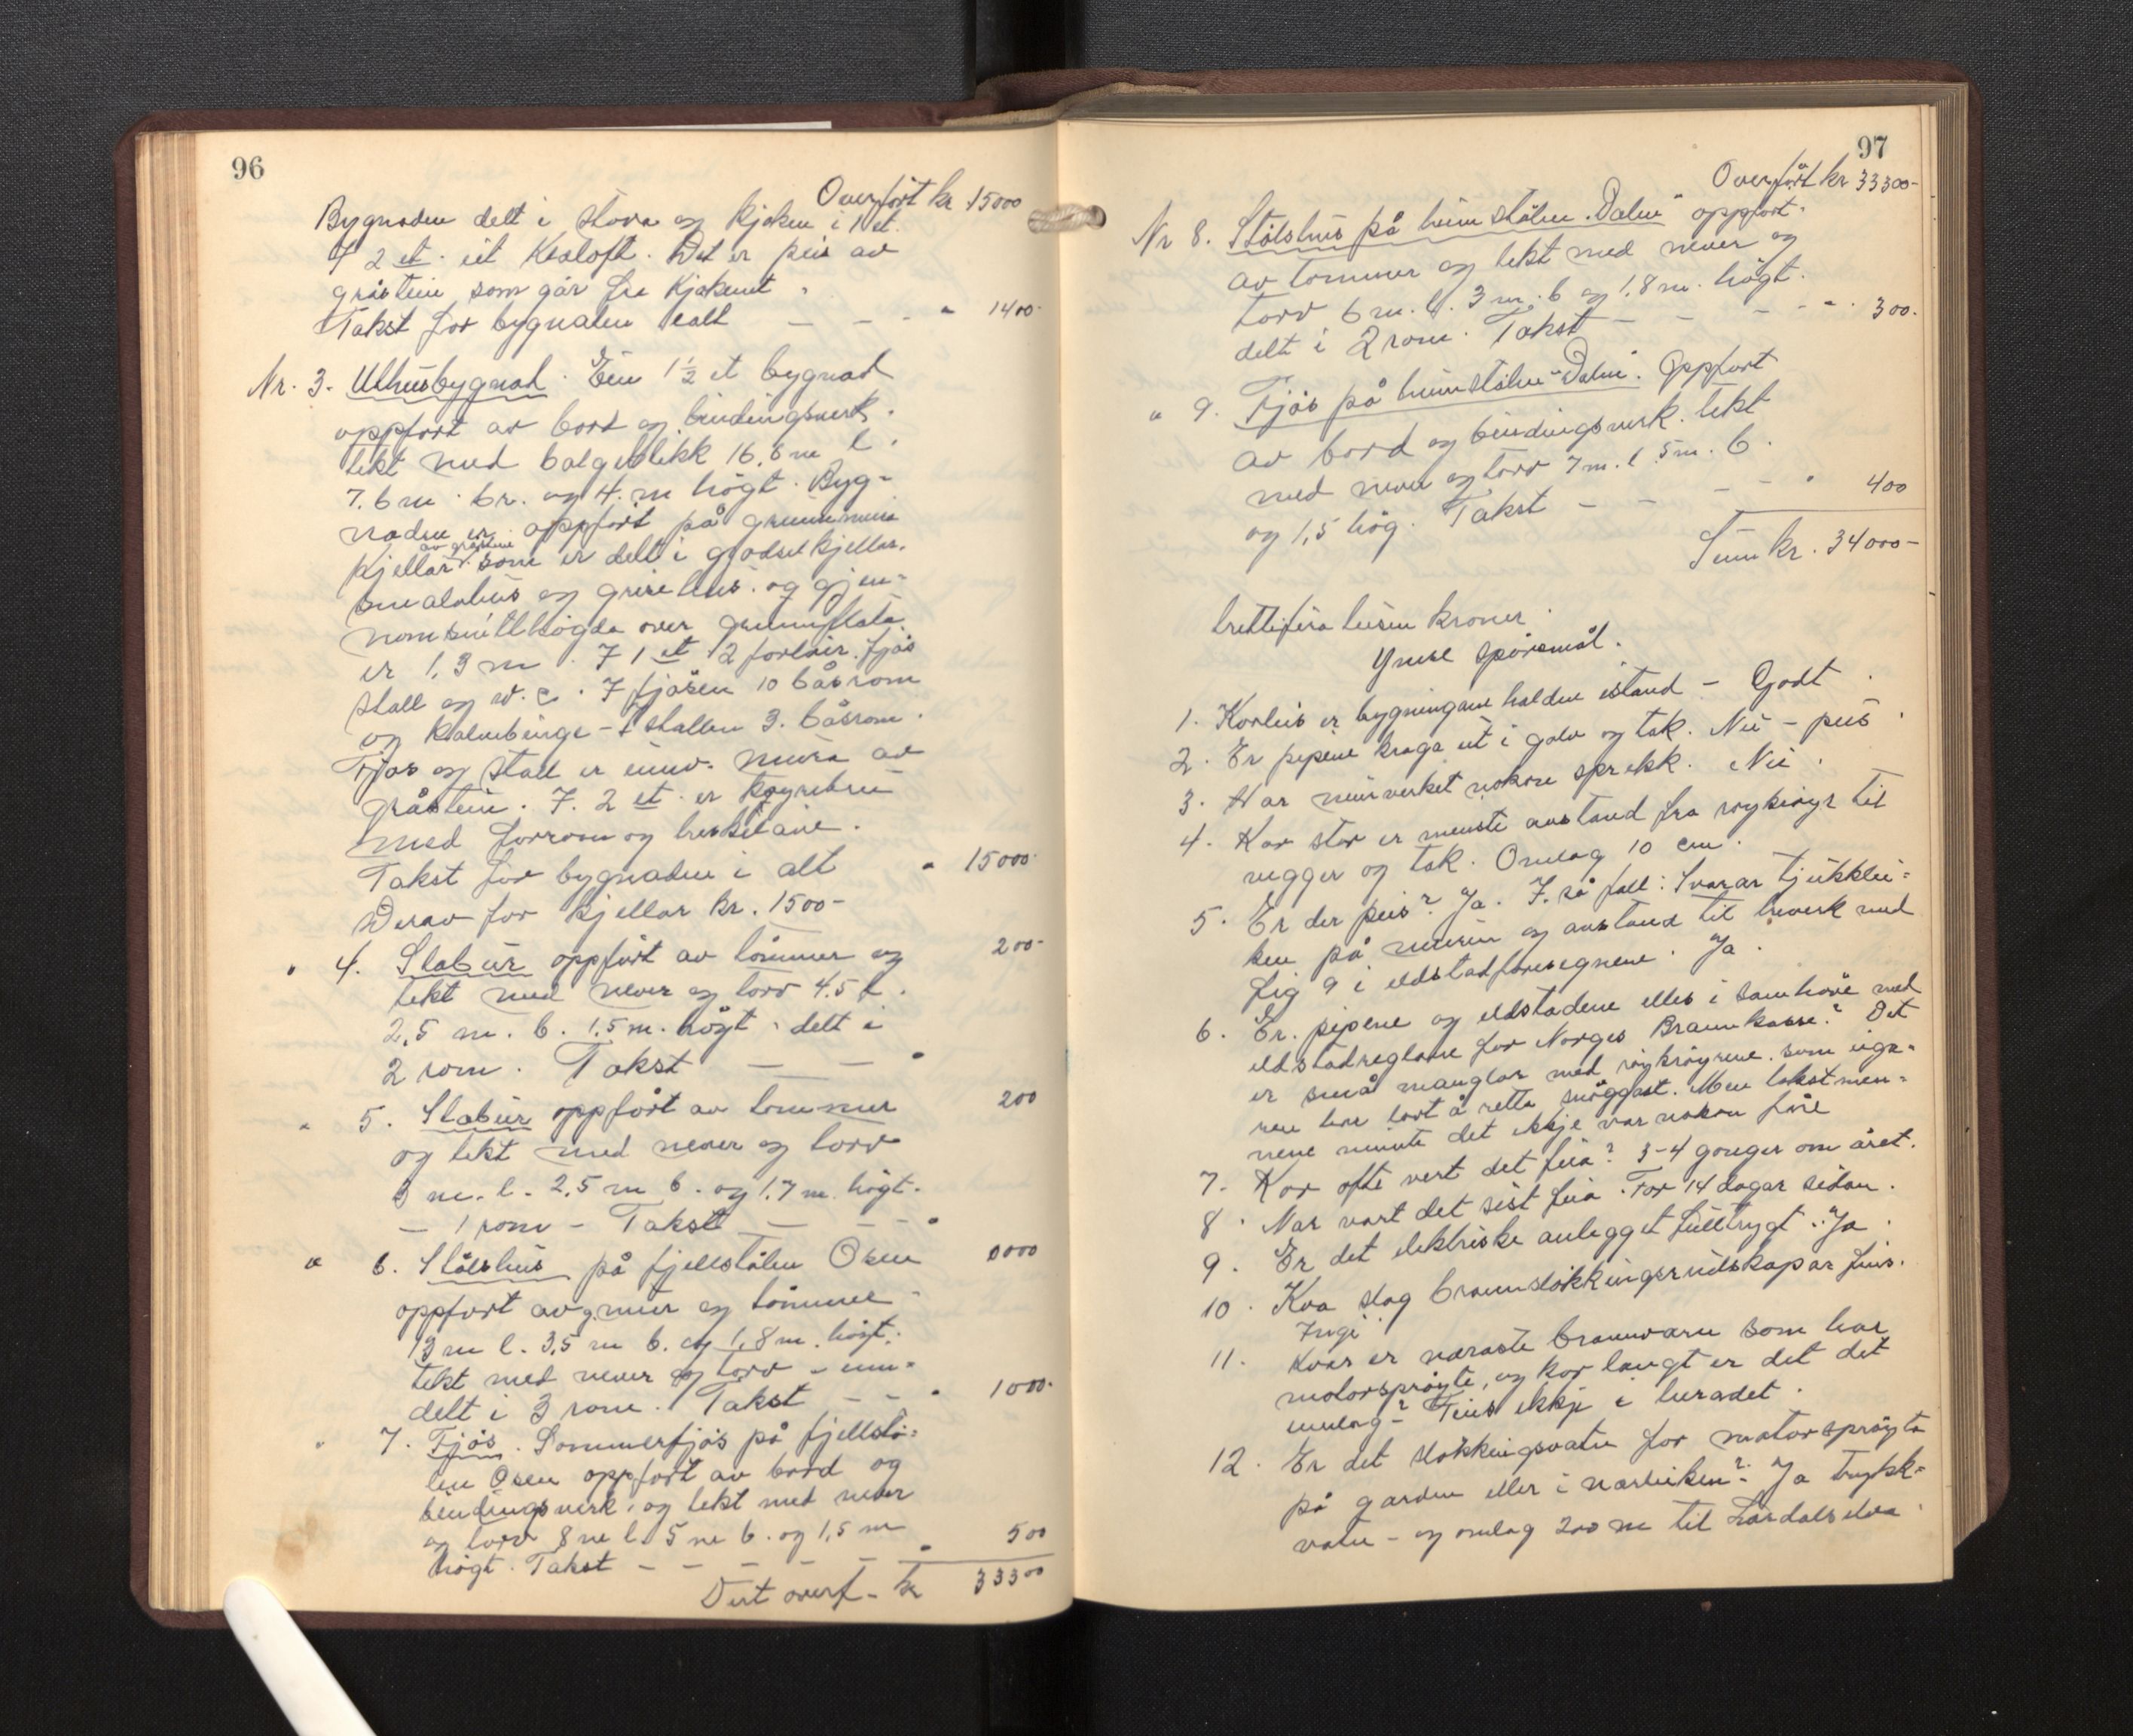 96
Overført kr 15000
Bygnaden delt i stova og kjøken i 1 et.
I 2 et. eit kvaloft. Det er peis av
gråstein som går fra kjøkenet.
Takst for bygnaden ialt — — - " 1400.
Nr. 3. Uthusbygnad. Ein 1½ et bygnad
oppført av bord og bindingsverk.
tekt med bølgeblekk 16,6 m l.
7.6 m. br. og 4. m høgt. Byg-
naden er oppført på grunnmur
av gråstein
kjellar som er delt i gjødselkjellar.
smalahus og grisehus. og gjen-
nomsnitthøgda over grunnflata
er 1,3 m. I 1 et 2 forløer. fjøs
stall og w.c. I fjøsen 10 båsrom
og kalvebinge - I stallen 3. båsrom.
Fjøs og stall er innv. mura av
gråstein. I. 2 et. er køyrebru
med forrom og treskjåve.
Takst for bygnaden i alt " 15000.
Derav for kjellar kr. 1500-
" 4. Stabur oppført av tømmer og 200-
tekt med never og torv 4.5 l.
2,5 m. b. 1.5 m. høgt. delt i
2 rom. Takst — — "
" 5. Stabur oppført av tømmer 200
og tekt med never og torv
3 m. l. 2,5 m b. og 1.7 m. høgt.
— 1 rom - Takst — - - "
" 6. Stølshus på fjellstølen Osen
oppført av gmur og tømmer
13 m l. 3,5 m b. og 1,8 m. høgt.
tekt med never og torv - inn-
delt i 3 rom. Takst - - " 1000-
" 7. Fjøs. Sommerfjøs på fjellstø-
len Osen oppført av bord og
bindingsverk, og tekt med never
og torv 8 m l. 5 m b. og 1,5 m
høgt. Takst — — — — — " 500
Vert overf - kr 33300
97
Overført kr 33300-
Nr 8. Stølshus på heimstølen "Dalen" oppført.
av tømmer og tekt med never og
torv 6 m. l. 3 m. b og 1,8 m. høgt.
delt i 2 rom. Takst — — - - " 300.
" 9. Fjøs på heimstølen "Dalen". Oppført
av bord og bindingsverk. tekt
med never og torv 7 m. l. 5 m. b.
og 1,5 høg. Takst — — - - " 400
Sum kr. 34000-
trettifira tusen kroner.
Ymse spørsmål.
1. Korleis er bygningane haldne istand - Godt.
2. Er pipene kraga ut i golv og tak. Nei - peis.
3. Har murverket nokre sprekk. Nei.
4. Kor stor er minste avstand fra røykrøyr til
vegger og tak. Omlag 10 cm.
5. Er der peis? Ja. I. så fall: Svarar tjukklei-
ken på muren og avstand til treverk med
fig 9 i eldstadforesegnene. Ja.
6. Er. pipene og eldstadene elles i samhøve med
eldstadreglane for Norges Brannkasse? Det
er små manglar med røykrøyrene. som eiga-
ren har lovt å retta snøggast. Men takstmen-
nene meinte det ikkje var nokon fåre
7. Kor ofte vert det feia? 3-4 gonger om året.
8. Når vart det sist feia. For 14 dagar sidan.
9. Er det elektriske anlegget fulltrygt. Ja.
10. Kva slag brannsløkkingsreidskapar fins.
Ingi
11. Kvar er næraste brannvarn som har
motorsprøyte, og kor langt er det dit
omlag? Fins ikkje i heradet.
12. Er det sløkkingsvatn for motorsprøyta
på garden eller i nærleiken? Ja trykk-
vatn - og omlag 200 m til Lærdalselva.